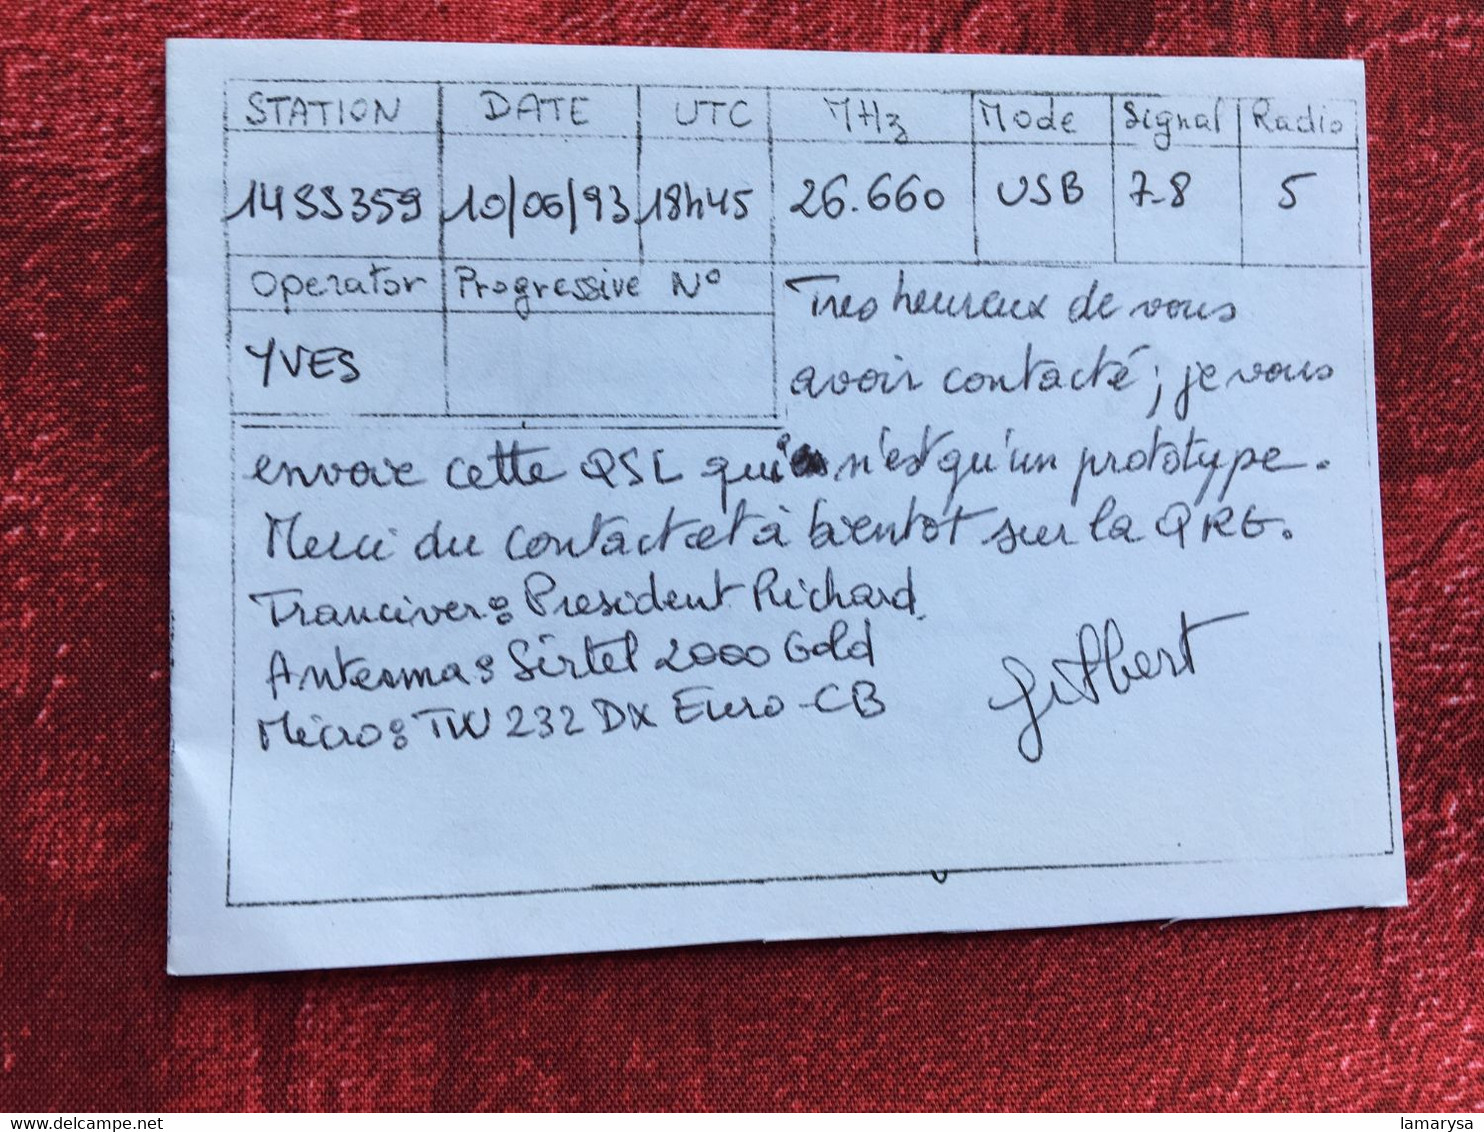 STATION DATE UTC MHz Mode Signal Radio
14SS359 10/06/93 18h45 26.660 USB 7-8 5
Operator Progressive N°
YVES
Tres heureux de vous
avoir contacté; je vous
envoie cette QSL qui n'est qu'un prototype.
Merci du contact et à bientot sur la QRG.
Tranciver: President Richard
Antenna: Sirtel 2000 Gold
Micro: TW 232 DX Euro-CB
Gilbert
www.delcampe.net
lamarysa